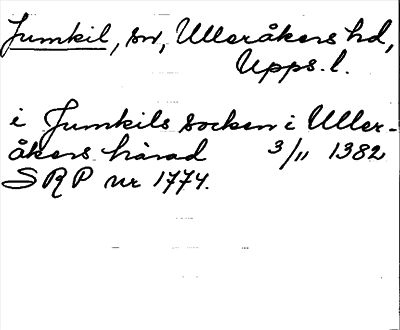 Jumkil, sn, Ulleråkers hd,
Upps. l.
i Jumkils socken i Uller-
åkers härad 3/11 1382
SRP nr 1774.